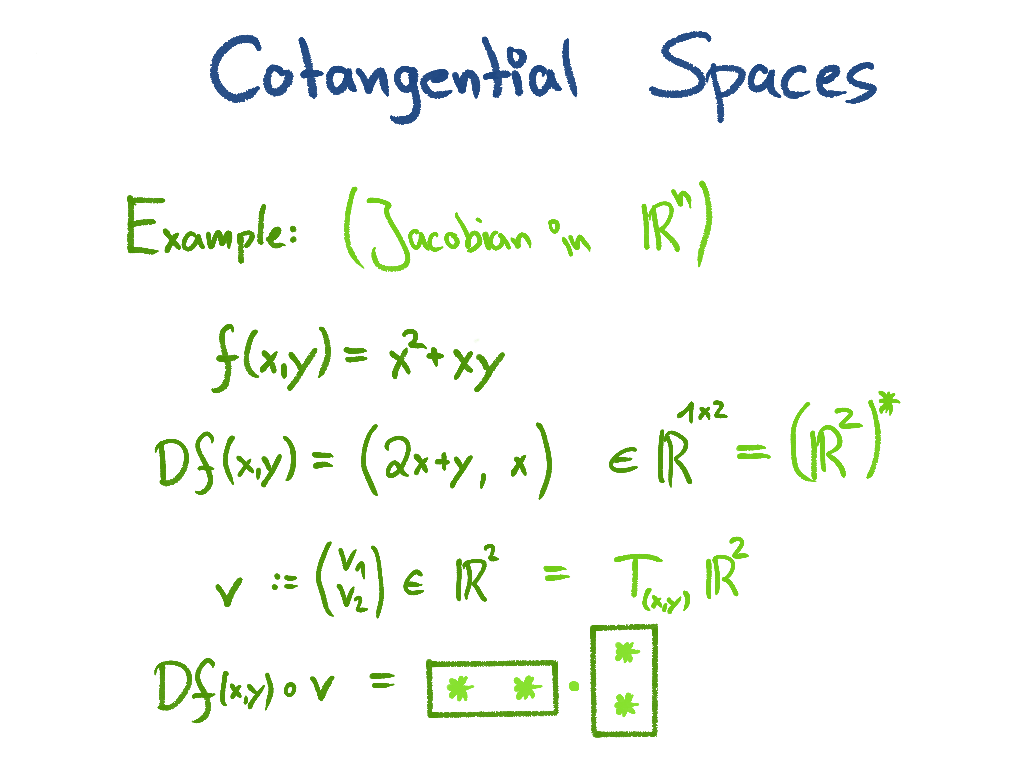 Cotangential Spaces
Example: (Jacobian in ℝⁿ)
f(x,y) = x² + xy
Df(x,y) = (2x+y, x) ∈ ℝ¹ˣ² = (ℝ²)*
v := (v₁ v₂) ∈ ℝ² = T₍ₓ,ᵧ₎ ℝ²
Df(x,y) ∘ v = [* *] · [* *]